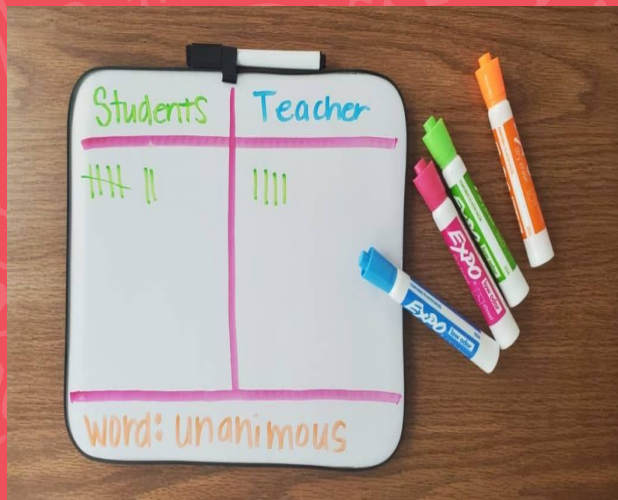 Students Teacher
word: unanimous
EXPO
EXPO
EXPO